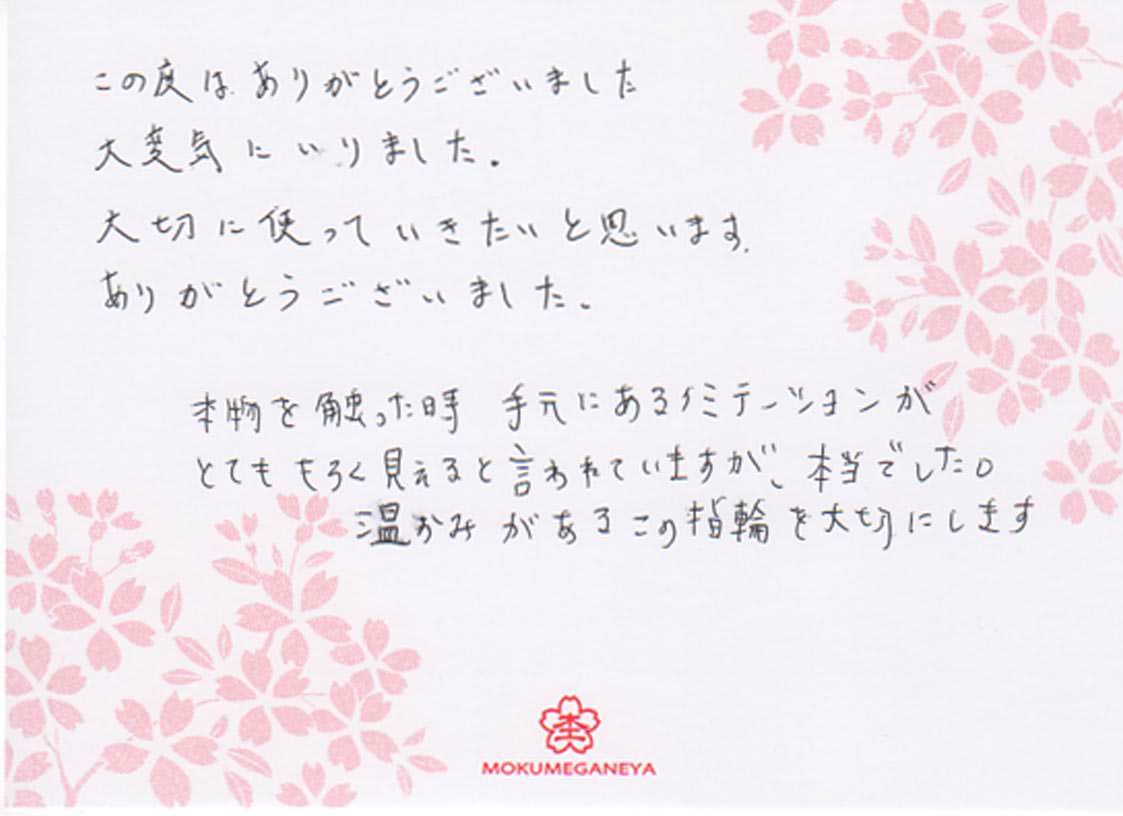 この度は ありがとうございました
大変気にいりました。
大切に使っていきたいと思います。
ありがとうございました。
本物を触った時 手元にあるイミテーションが
とてももろく見えると言われていますが、本当でした。
温かみがあるこの指輪を大切にします
杢
MOKUMEGANEYA